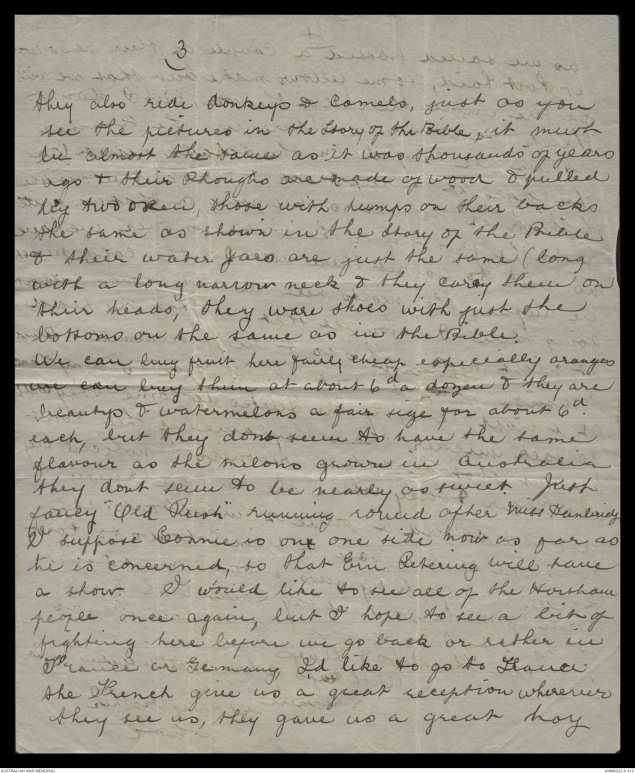 3
they also ride donkeys & Camels, just as you
see the pictures in the Story of the Bible, it must
be almost the same as it was thousands of years
ago & their Ploughs are made of wood & pulled
by two oxen, those with humps on their backs
the same as shown in the Story of the Bible
& their water Jars are just the same (long
with a long narrow neck & they carry them on
their heads, they ware shoes with just the
bottoms on the same as in the Bible.
We can buy fruit here fairly cheap especially oranges
we can buy them at about 6d a dozen & they are
beautys & watermelons a fair size for about 6d.
each, but they dont seem to have the same
flavour as the melons grown in Australia
they dont seem to be nearly as sweet. Just
fancy "Old Rush" running round after Miss
I suppose Connie is one one side now as far as
he is concerned, so that Ern will have
a show. I would like to see all of the Horsham
people once again, but I hope to see a bit of
fighting here before we go back or rather in
France or Germany, I'd like to go to France
the French give us a great reception wherever
they see us, they gave us a great hoy
AUSTRALIAN WAR MEMORIAL